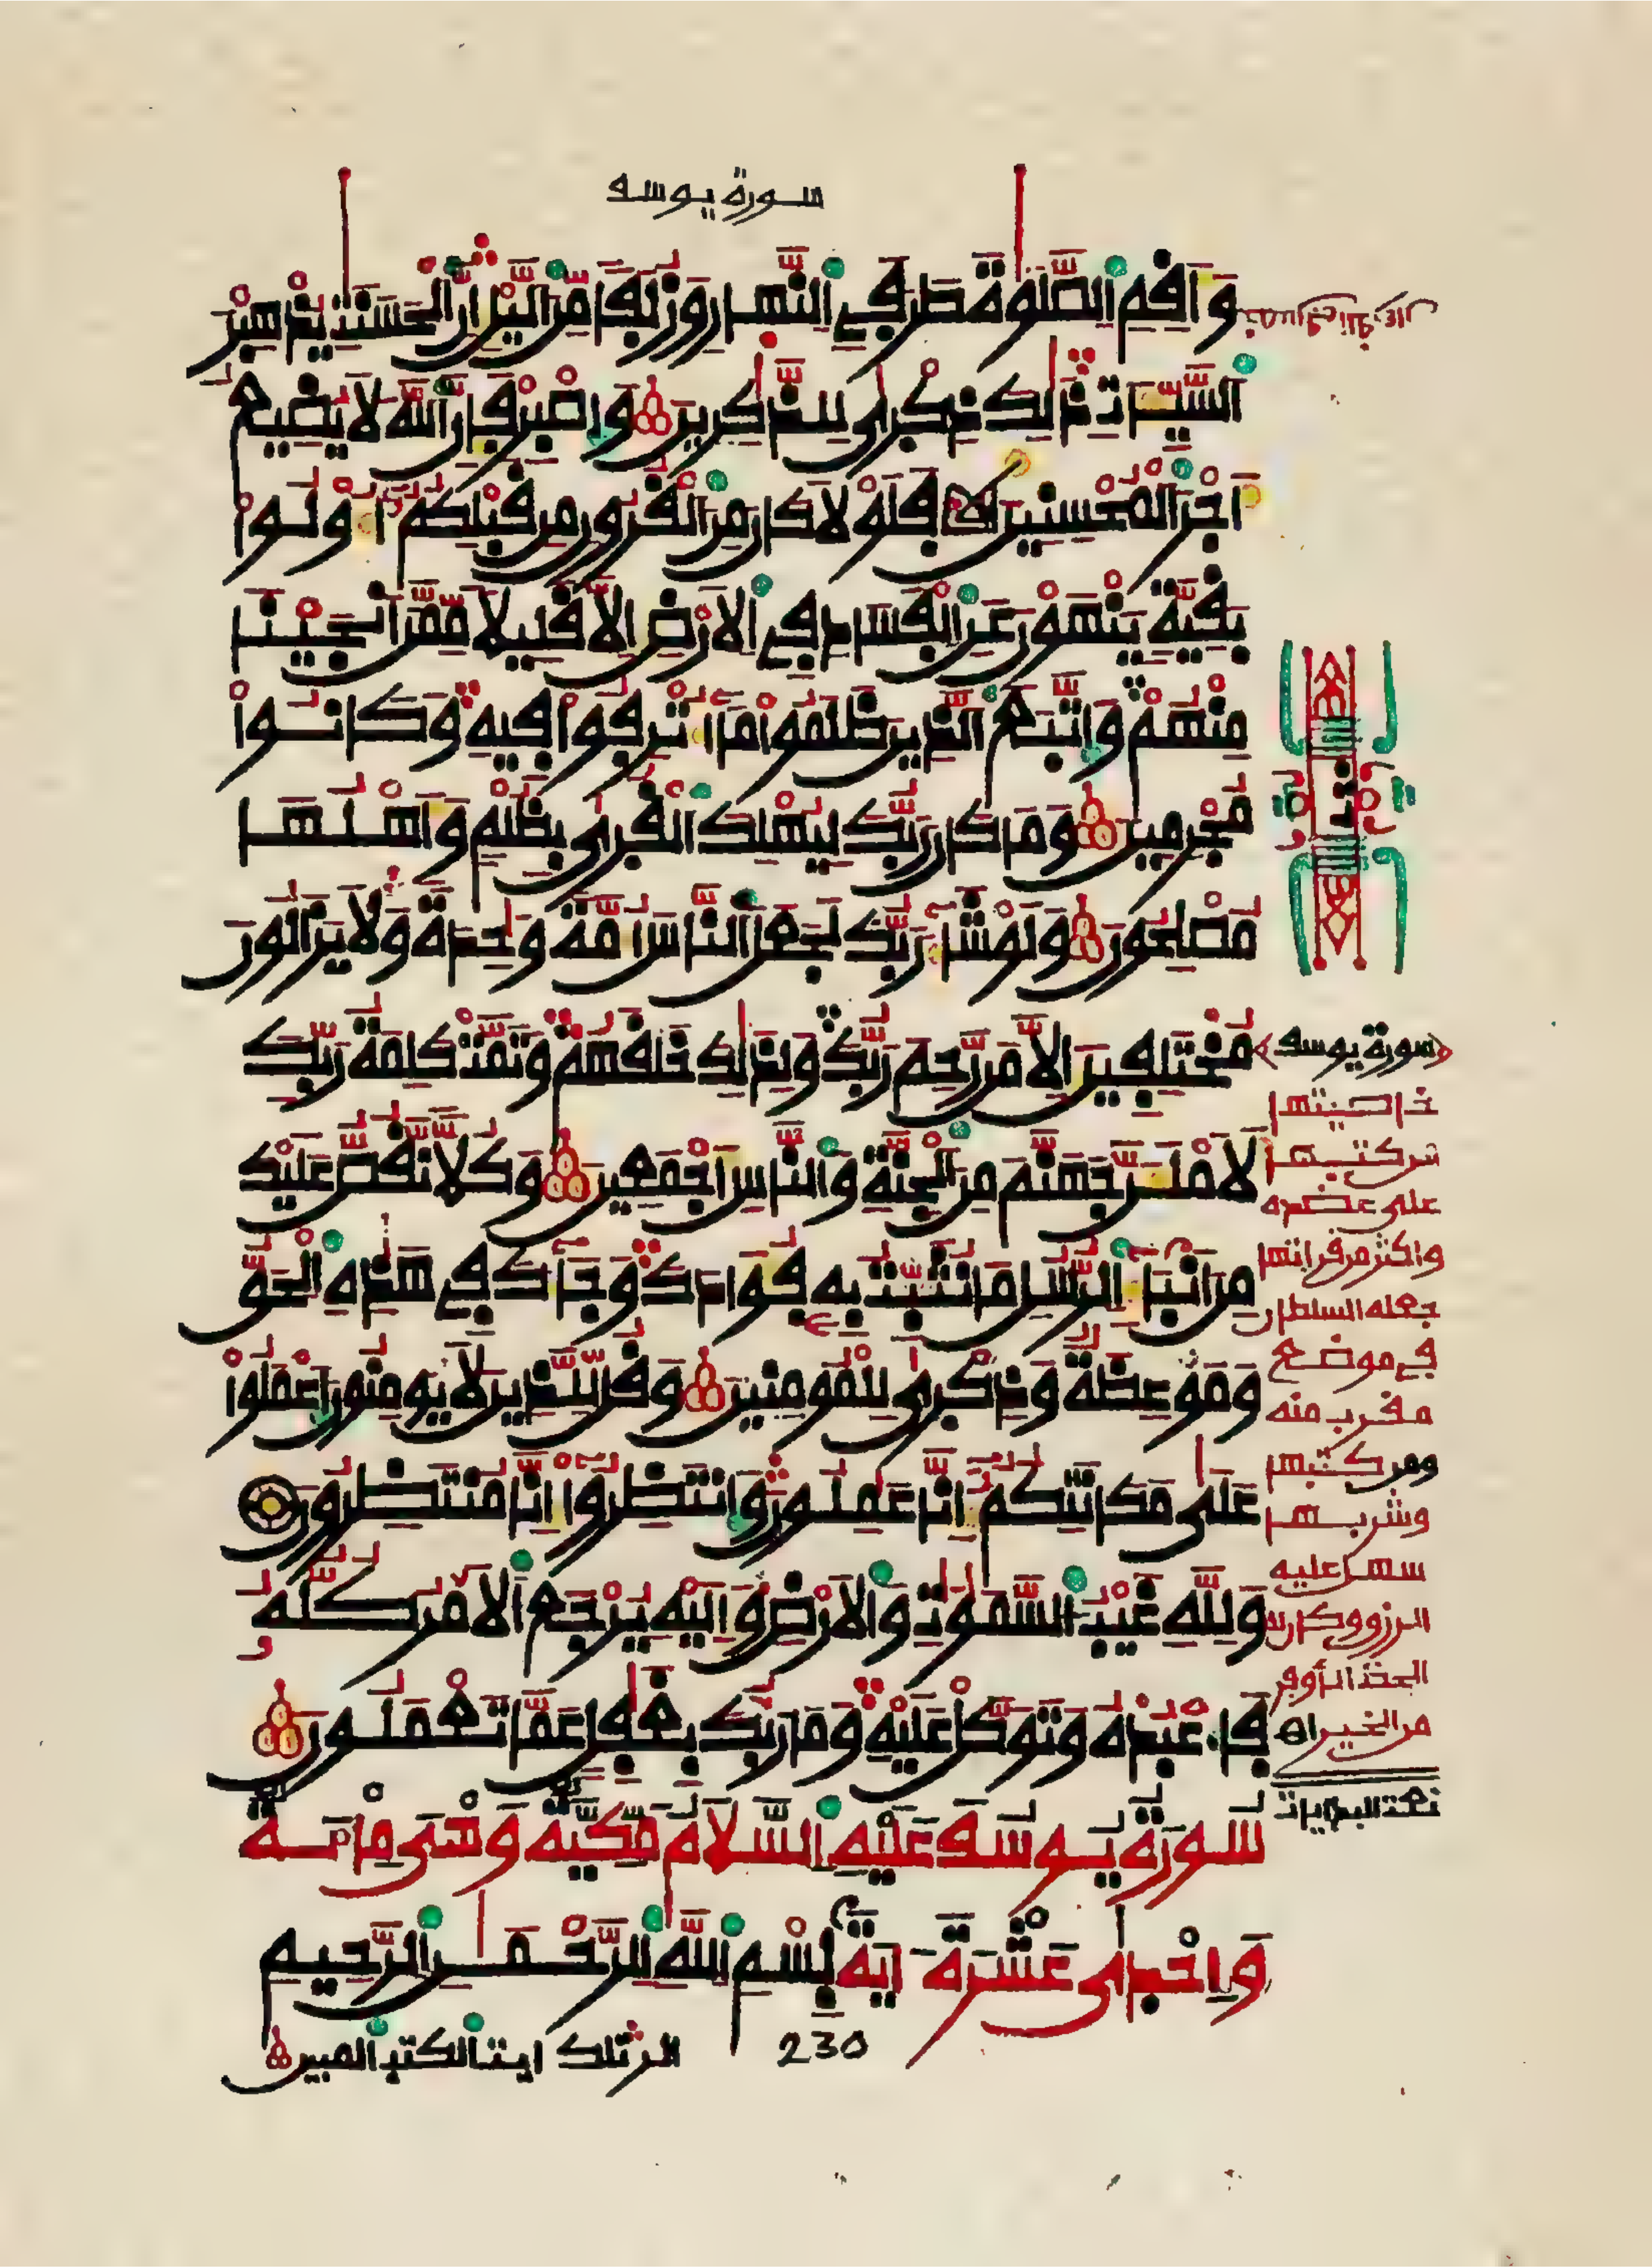 سورة يوسف
وَأَقِمِ الصَّلَوٰةَ طَرَفَيِ النَّهَارِ وَزُلَفًا مِّنَ اليْلِ إِنَّ الْحَسَنَٰتِ يُذْهِبْنَ
السَّيِّـَٔاتِ ذَٰلِكَ ذِكْرَىٰ لِلذَّٰكِرِينَ وَاصْبِرْ فَإِنَّ اللَّهَ لَا يُضِيعُ
أَجْرَ الْمُحْسِنِينَ فَلَوْلَا كَانَ مِنَ الْقُرُونِ مِن قَبْلِكُمُ أُوْلُوا
بَقِيَّةٍ يَنْهَوْنَ عَنِ الْفَسَادِ فِي الْأَرْضِ إِلَّا قَلِيلًا مِّمَّنْ أَنجَيْنَا
مِنْهُمْ وَاتَّبَعَ الَّذِينَ ظَلَمُوا مَا أُتْرِفُوا فِيهِ وَكَانُوا
مُجْرِمِينَ وَمَا كَانَ رَبُّكَ لِيُهْلِكَ الْقُرَىٰ بِظُلْمٍ وَأَهْلُهَا
مُصْلِحُونَ وَلَوْ شَاءَ رَبُّكَ لَجَعَلَ النَّاسَ أُمَّةً وَٰحِدَةً وَلَا يَزَالُونَ
مُخْتَلِفِينَ إِلَّا مَن رَّحِمَ رَبُّكَ وَلِذَٰلِكَ خَلَقَهُمْ وَتَمَّتْ كَلِمَةُ رَبِّكَ
لَأَمْلَأَنَّ جَهَنَّمَ مِنَ الْجِنَّةِ وَالنَّاسِ أَجْمَعِينَ وَكُلًّا نَّقُصُّ عَلَيْكَ
مِنْ أَنبَاءِ الرُّسُلِ مَا نُثَبِّتُ بِهِ فُؤَادَكَ وَجَاءَكَ فِي هَٰذِهِ الْحَقُّ
وَمَوْعِظَةٌ وَذِكْرَىٰ لِلْمُومِنِينَ وَقُل لِّلَّذِينَ لَا يُومِنُونَ اعْمَلُوا
عَلَىٰ مَكَانَتِكُمُ إِنَّا عَٰمِلُونَ وَانتَظِرُوا إِنَّا مُنتَظِرُونَ
وَلِلَّهِ غَيْبُ السَّمَٰوَٰتِ وَالْأَرْضِ وَإِلَيْهِ يَرْجِعُ الْأَمْرُ كُلُّهُ
فَاعْبُدْهُ وَتَوَكَّلْ عَلَيْهِ وَمَا رَبُّكَ بِغَٰفِلٍ عَمَّا تَعْمَلُونَ
سُورَةُ يُوسُفَ عَلَيْهِ السَّلَامُ مَكِّيَّةٌ وَهْيَ مِائَةٌ
وَإِحْدَىٰ عَشْرَةَ آيَةً بِسْمِ اللَّهِ الرَّحْمَٰنِ الرَّحِيمِ
الر تلك ايت الكتب المبين
230
ثمن
سورة يوسف
خاصيتها
من كتبها
على عضده
واكثر من قراءتها
جعله السلطان
في موضع
مقرب منه
ومن كتبها
وشربها
سهل عليه
الرزق وكان له
الحظ الأوفر
من الخير اه